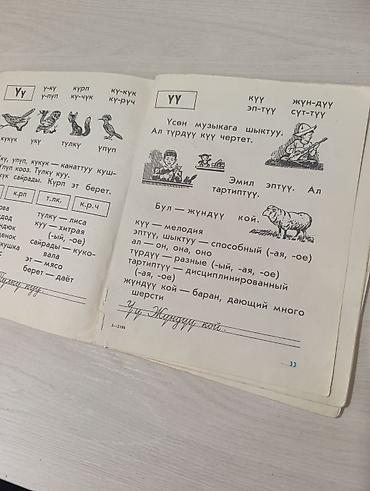 Үү
ү-кү күрп кү-күк
ү-пүп кү-чүк кү-рүч
күкүк үкү түлкү үпүп
үпүп, күкүк — канаттуу куш-
үпүп кооз. Түлкү куу.
күк сайрады. Күрп эт берет.
к.рп т.лк. к.р.ч
түлкү — лиса
куу — хитрая
(-ый, -ое)
сайрады — куко-
вала
эт — мясо
берет — даёт
Түлкү куу.
ҮҮ
күү жүн-дүү
эп-түү сүт-түү
Үсөн музыкага шыктуу.
Ал түрдүү күү чертет.
Эмил эптүү. Ал
тартиптүү.
Бул — жүндүү кой.
күү — мелодия
эптүү, шыктуу — способный (-ая, -ое)
ал — он, она, оно
түрдүү — разные (-ый, -ая, -ое)
тартиптүү — дисциплинированный
(-ая, -ое)
жүндүү кой — баран, дающий много
шерсти
Үү Жүндүү кой.
33